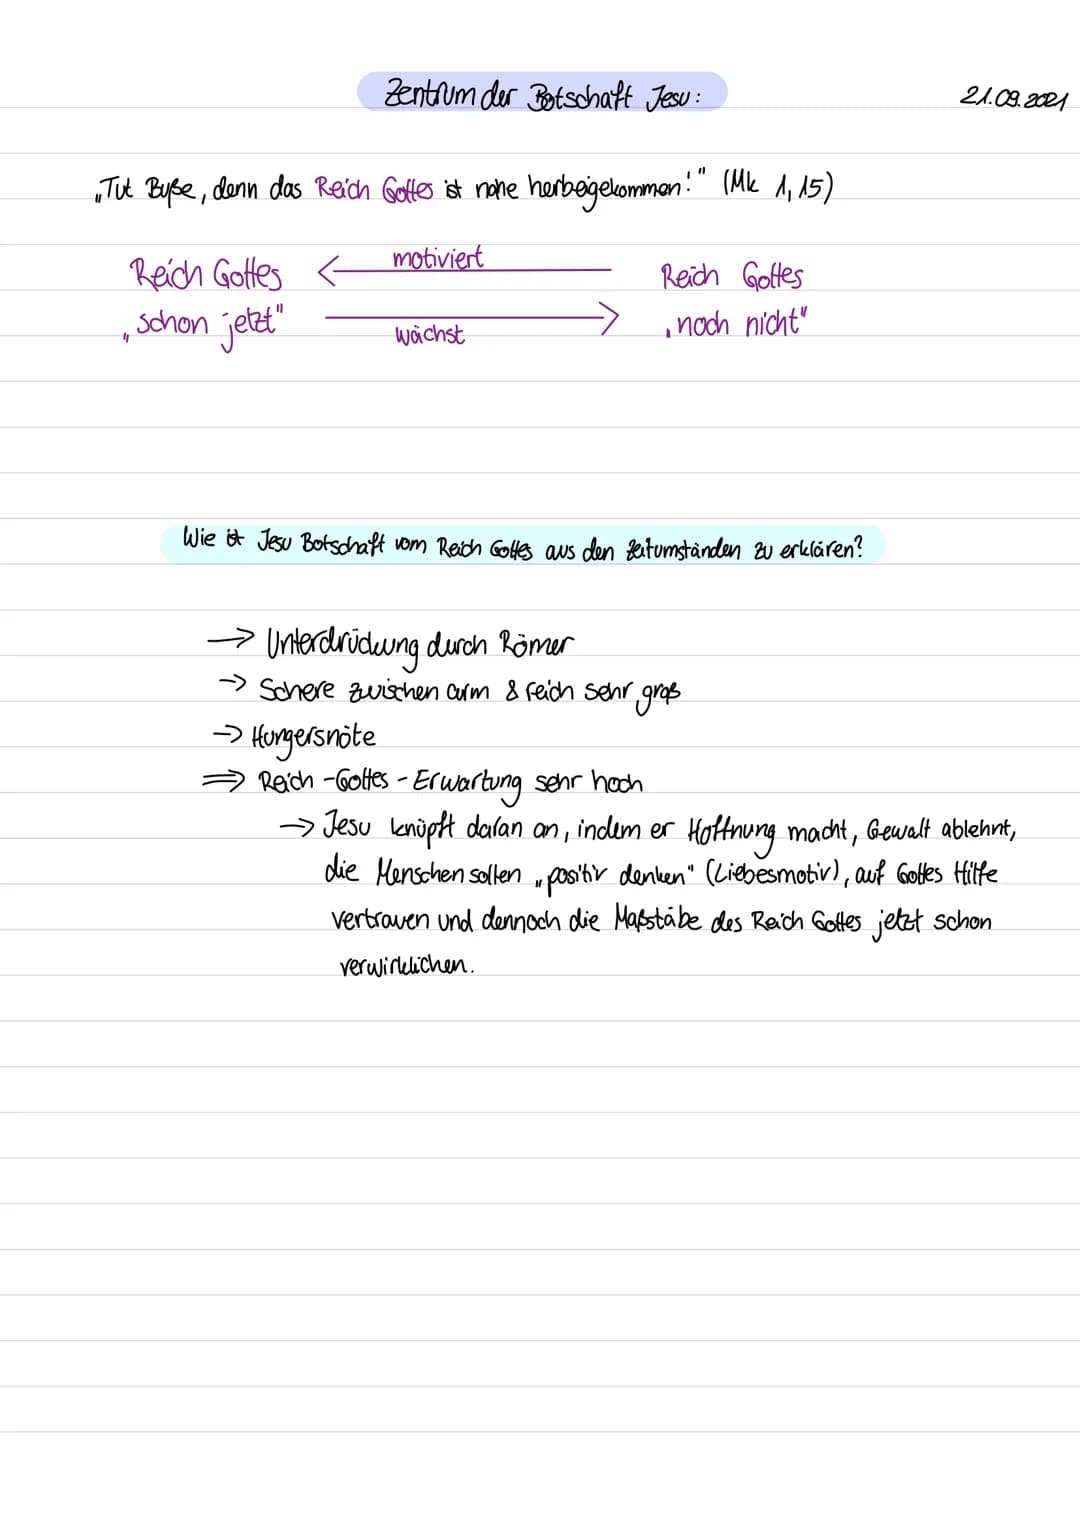 Zentrum der Botschaft Jesu:
21.09.2021
„Tut Buße, denn das Reich Gottes ist nahe herbeigekommen!" (Mk 1,15)
Reich Gottes
motiviert
Reich Gottes
„schon jetzt"
wächst
„noch nicht"
Wie ist Jesu Botschaft vom Reich Gottes aus den Zeitumständen zu erklären?
→ Unterdrückung durch Römer
→ Schere zwischen arm & reich sehr groß
→ Hungersnöte
⇒ Reich-Gottes-Erwartung sehr hoch
→ Jesu knüpft daran an, indem er Hoffnung macht, Gewalt ablehnt,
die Menschen sollen „positiv denken" (Liebesmotiv), auf Gottes Hilfe
vertrauen und dennoch die Maßstäbe des Reich Gottes jetzt schon
verwirklichen.